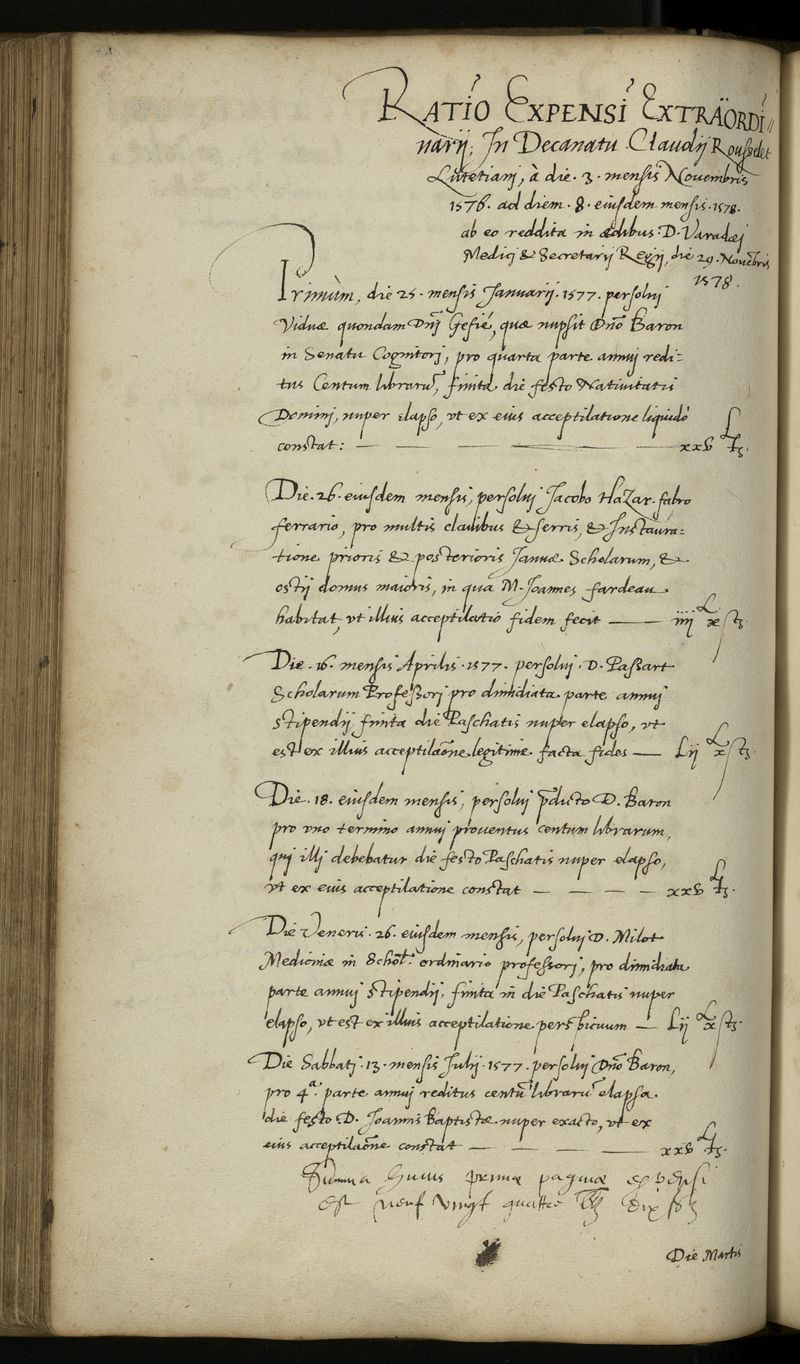 RATIO EXPENSI EXTRAORDI
narij, In Decanatu Claudij Rousselet
Lutetiani, à die .3. mensis Novembris
1576. ad diem .8. eiusdem mensis .1578.
ab eo reddita in ædibus .D. Varadæi
Medici & Secretarij Regij, die 29. Novẽbris
1578.
Primùm, die 25. mensis Januarij .1577. persolui
Viduæ quondam Dnj Gesié, quæ nupsit Dño Baron
in Senatu Cognitori, pro quarta parte annui redi-
tus Centum librarũ, finita die festo Natiuitatis
Domini, nuper elapso, vt ex eius acceptilatione liquidò
constat: xxv ₶.
Die .26. eiusdem mensis, persolui Jacobo Hazar. fabro
ferrario, pro multis clauibus & serris, & Instaura-
tione prioris & posterioris Januæ Scholarum, &
ostij domus maioris, in qua M. Joannes fardeau
habitat, vt illius acceptilatio fidem fecit iiij ₶ x s tz
Die .16. mensis Aprilis .1577. persolui .D. Passart
Scholarum Professori pro dimidiata parte annui
stipendij, finita die Paschatis nuper elapso, vt
est ex illius acceptilaõne legitime facta fides Lij ₶ x s tz.
Die .18. eiusdem mensis, persolui p̃dicto D. Baron
pro vno termino annui prouentus centum librarum,
qui illi debebatur die festo Paschatis nuper elapso,
vt ex eius acceptilatione constat xxv ₶.
Die Veneris .26. eiusdem mensis, persolui D. Milot
Medicinæ in Schol. ordinario professori, pro dimidiata
parte annui stipendij, finita in die Paschatis nuper
elapso, vt est ex illius acceptilatione perspicuum Lij ₶ x s tz.
Die Sabbati .13. mensis Julij .1577. persolui Dño Baron,
pro 4ᵃ. parte annui reditus centũ librarũ elapsa
die festo D. Joannis Baptistæ nuper exacto, vt ex
eius acceptilaõne constat xxv ₶.
Summa huius primæ paginæ expensi
est neuf vingt quattre ₶ dix s tz
Die Martis